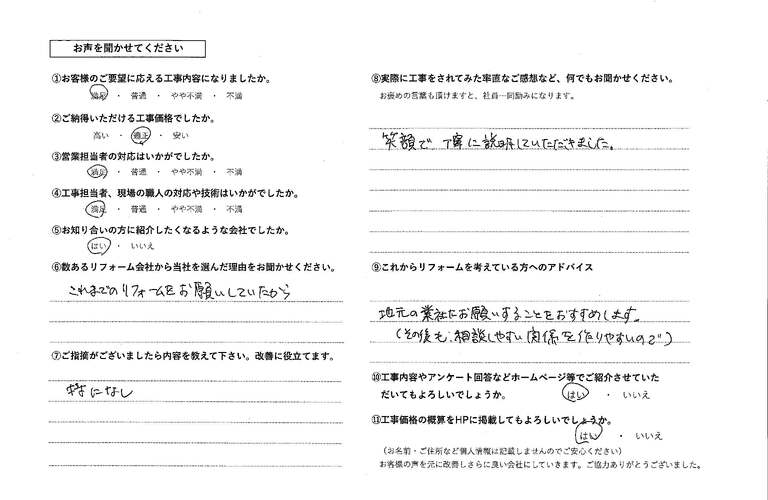 お声を聞かせてください
①お客様のご要望に応える工事内容になりましたか。
満足 ・ 普通 ・ やや不満 ・ 不満
②ご納得いただける工事価格でしたか。
高い ・ 適正 ・ 安い
③営業担当者の対応はいかがでしたか。
満足 ・ 普通 ・ やや不満 ・ 不満
④工事担当者、現場の職人の対応や技術はいかがでしたか。
満足 ・ 普通 ・ やや不満 ・ 不満
⑤お知り合いの方に紹介したくなるような会社でしたか。
はい ・ いいえ
⑥数あるリフォーム会社から当社を選んだ理由をお聞かせください。
これまでのリフォームをお願いしていたから
⑦ご指摘がございましたら内容を教えて下さい。改善に役立てます。
特になし
⑧実際に工事をされてみた率直なご感想など、何でもお聞かせください。
お褒めの言葉も頂けますと、社員一同励みになります。
笑顔で丁寧に説明していただきました。
⑨これからリフォームを考えている方へのアドバイス
地元の業社にお願いすることをおすすめします。
(その後も、相談しやすい関係を作りやすいので)
⑩工事内容やアンケート回答などホームページ等でご紹介させていた
だいてもよろしいでしょうか。 はい ・ いいえ
⑪工事価格の概算をHPに掲載してもよろしいでしょうか。
はい ・ いいえ
(お名前・ご住所など個人情報は記載しませんのでご安心ください)
お客様の声を元に改善しさらに良い会社にしていきます。ご協力ありがとうございました。